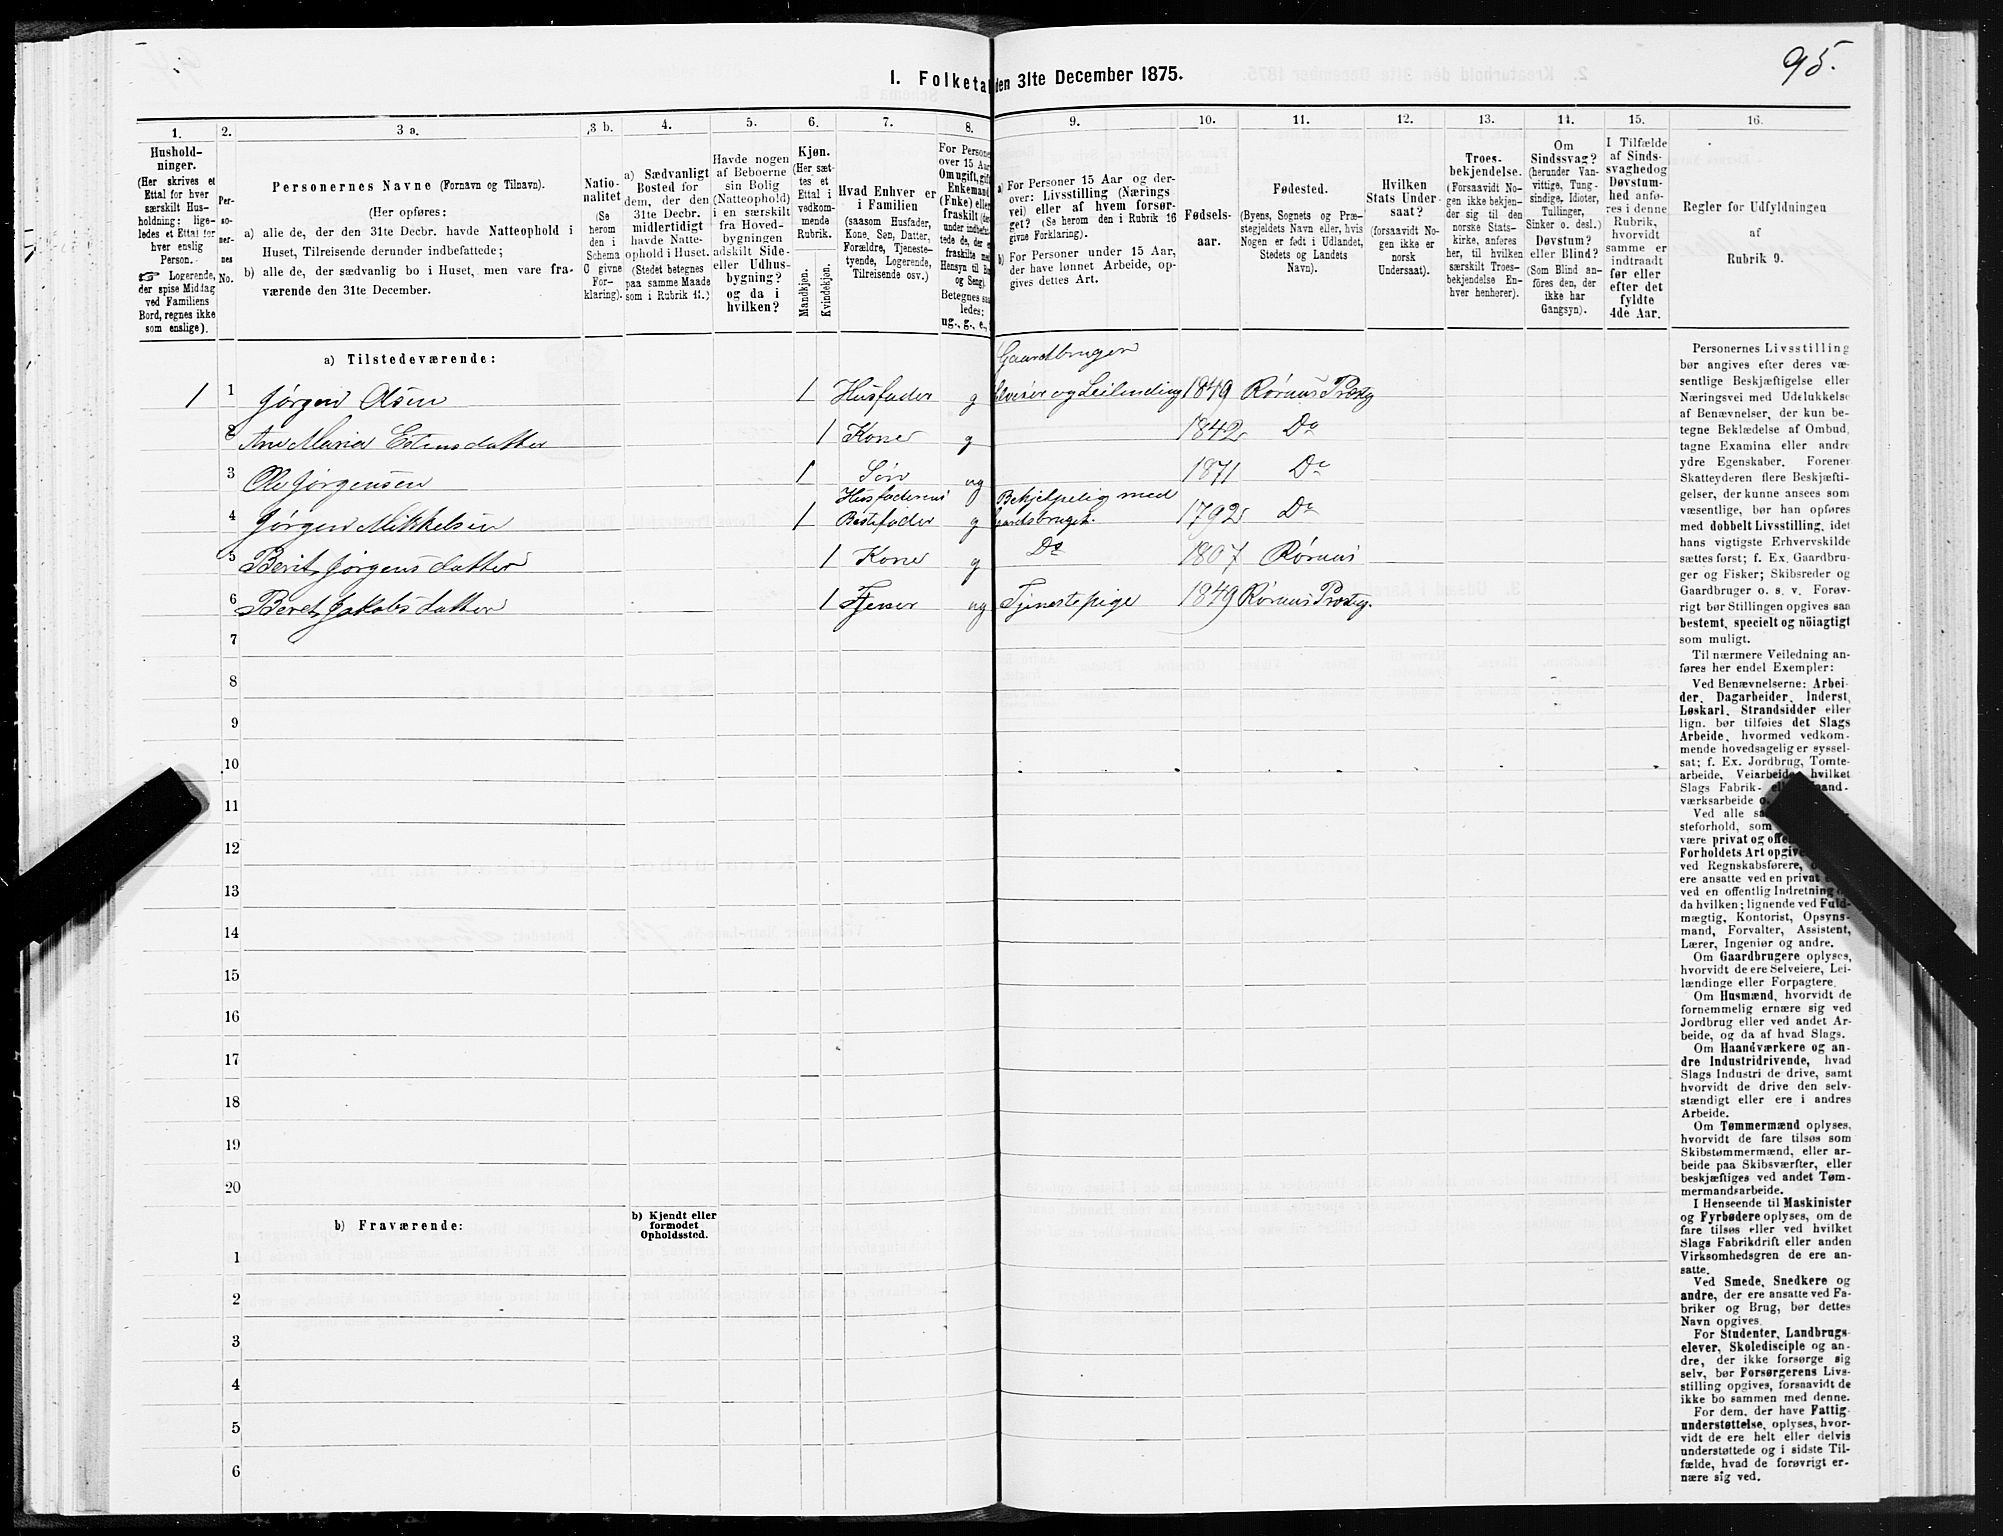 95.
I. Folketal den 31te December 1875.
1. 2. 3 a. 3 b. 4. 5. 6. 7. 8. 9. 10. 11. 12. 13. 14. 15. 16.
Hushold-
ninger.
(Her skrives et
Ettal for hver
særskilt Hus-
holdning; lige-
ledes et Ettal for
hver enslig
Person.
☞ Logerende,
der spise Middag
ved Familiens
Bord, regnes ikke
som enslige).
Per-
so-
ner-
nes
No.
Personernes Navne (Fornavn og Tilnavn).
(Her opføres:
a) alle de, der den 31te Decbr. havde Natteophold i
Huset, Tilreisende derunder indbefattede;
b) alle de, der sædvanlig bo i Huset, men vare fra-
værende den 31te December.
Natio-
nalitet
(Se
herom
den i
Schema
C givne
For-
klaring).
a) Sædvanligt
Bosted for
dem, der den
31te Decbr.
midlertidigt
havde Natte-
ophold i Huset.
(Stedet betegnes
paa samme Maade
som i Rubrik 11.)
Havde nogen
af Beboerne
sin Bolig
(Natteophold)
i en særskilt
fra Hoved-
bygningen
adskilt Side-
eller Udhus-
bygning?
og da i
hvilken?
Kjøn.
(Her sæt-
tes et
Ettal i
vedkom-
mende
Rubrik.
Mandkjøn.
Kvindekjøn.
Hvad Enhver er
i Familien
(saasom Husfader,
Kone, Søn, Datter,
Forældre, Tjeneste-
tyende, Logerende,
Tilreisende osv.)
For Personer
over 15 Aar:
Om ugift, gift,
Enkemand
(Enke) eller
fraskilt (de
under indbefat-
tede de, der e
fraskilte med
Hensyn til Bo
og Seng).
Betegnes saa-
ledes:
ug., g., e.,
a) For Personer 15 Aar og der-
over: Livsstilling (Nærings
vei) eller af hvem forsør-
get? (Se herom den i Rubrik 16
givne Forklaring).
b) For Personer under 15 Aar,
der have lønnet Arbeide, op-
gives dettes Art.
Fødsels-
aar.
Fødested.
(Byens, Sognets og Præ-
stegjeldets Navn eller, hvis
Nogen er født i Udlandet,
Stedets og Landets
Navn).
Hvilken
Stats Under-
saat?
(forsaavidt No-
gen ikke er
norsk
Undersaat).
Troes-
bekjendelse.
(Forsaavidt No-
gen ikke bekjen-
der sig til den
norske Stats-
kirke, anføres
her, til hvilken
særskilt Troes-
bekjendelse En-
hver henhører).
Om
Sindssvag?
(herunder Van-
vittige, Tung-
sindige, Idioter,
Tullinger,
Sinker o. desl.)
Døvstum?
eller Blind?
(Som Blind an-
føres den, der
ikke har
Gangsyn).
I Tilfælde
af Sinds-
svaghed og
Døvstum-
hed anfø-
res i denne
Rubrik,
hvorvidt
samme er
indtraadt
før eller
efter det
fyldte
4de Aar.
Regler for Udfyldningen
af
Rubrik 9.
a) Tilstedeværende:
Gaardbruger
1 1 Jørgen Olsen 1 Husfader g Selveier og Leilending 1849 Røraas Præstg
2 Ane Maria Estensdatter 1 Kone g 1842 Do
3 Ole Jørgensen 1 Søn ug 1871 Do
Husfaderens Behjelpelig med
4 Jørgen Mikkelsen 1 Bestefader g Gaardsbruget. 1792 Do
5 Berit Jørgensdatter 1 Kone g Do 1807 Røraas
6 Beret Jakobsdatter 1 Tjener ug Tjenestepige 1849 Røraas Præstg.
7
8
9
10
11
12
13
14
15
16
17
18
19
20
b) Fraværende:
b) Kjendt eller
formodet
Opholdssted.
1
2
3
4
5
6
Personernes Livsstilling
bør angives efter deres væ-
sentlige Beskjæftigelse eller
Næringsvei med Udelukkelse
af Benævnelser, der kun be-
tegne Beklædelse af Ombud,
tagne Examina eller andre
ydre Egenskaber. Forener
Skatteyderen flere Beskjæfti-
gelser, der kunne ansees som
væsentlige, bør han opføres
med dobbelt Livsstilling, idet
hans vigtigste Erhvervskilde
sættes først; f. Ex. Gaardbru-
ger og Fisker; Skibsreder og
Gaardbruger o. s. v. Forøv-
rigt bør Stillingen opgives saa
bestemt, specielt og nöiagtigt
som muligt.
Til nærmere Veiledning an-
føres her endel Exempler:
Ved Benævnelserne: Arbei-
der, Dagarbeider, Inderst,
Løskarl, Strandsidder eller
lign. bør tilføies det Slags
Arbeide, hvormed vedkom-
mende hovedsagelig er syssel-
sat; f. Ex. Jordbrug, Tomte-
arbeide, Veiarbeide, hvilket
Slags Fabrik- eller Haand-
værksarbeide o.
Ved alle
steforhold, som
være privat og
Forholdets Art opgives
ved Regnskabsførere,
ere ansatte ved en privat
ved en offentlig Indretning
da hvilken; lignende ved Fuld-
mægtig, Kontorist, Opsyns-
mand, Forvalter, Assistent,
Lærer, Ingeniør og andre.
Om Gaardbrugere oplyses,
hvorvidt de ere Selveiere, Lei-
lændinge eller Forpagtere.
Om Husmænd, hvorvidt de
fornemmelig ernære sig ved
Jordbrug eller ved andet Ar-
beide, og da af hvad Slags.
Om Haandværkere og an-
dre Industridrivende, hvad
Slags Industri de drive, samt
hvorvidt de drive den selv-
stændigt eller ere i andres
Arbeide.
Om Tømmermænd oplyses,
hvorvidt de fare tilsøs som
Skibstømmermænd, eller ar-
beide paa Skibsværfter, eller
beskjæftiges ved andet Tøm-
mermandsarbeide.
I Henseende til Maskinister
og Fyrbødere oplyses, om de
fare tilsøs eller ved hvilket
Slags Fabrikdrift eller anden
Virksomhedsgren de ere an-
satte.
Ved Smede, Snedkere og
andre, der ere ansatte ved Fa-
briker og Brug, bør dettes
Navn opgives.
For Studenter, Landbrugs-
elever, Skoledisciple og an-
dre, der ikke forsørge sig
selv, bør Forsørgerens Livs-
stilling opgives, forsaavidt de
ikke bo sammen med denne.
For dem, der have Fattig-
understøttelse, oplyses, hvor-
vidt de ere helt eller delvis
understøttede og i sidste Til-
fælde, hvad de forøvrigt er-
nære sig ved.